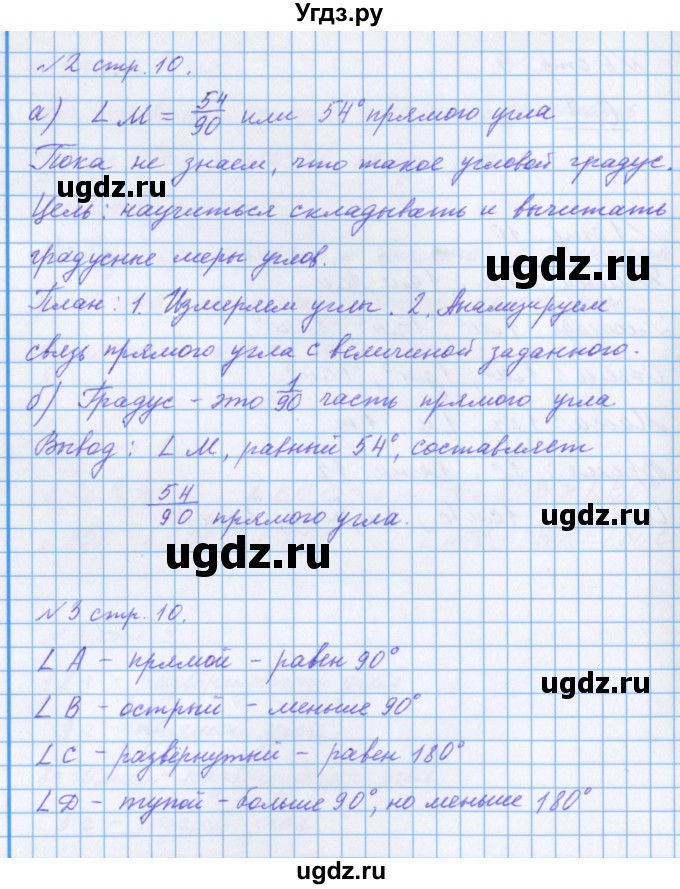 Угдз.ру
№2 стр. 10.
а) ∠ M = 54/90 или 54° прямого угла
Пока не знаем, что такое угловой градус.
ugdz.ru
Цель: научиться складывать и вычитать
ugdz.ru
градусные меры углов.
План: 1. Измеряем углы. 2. Анализируем
связь прямого угла с величиной заданного.
ugdz.ru
б) Градус - это 1/90 часть прямого угла
Вывод: ∠ M, равный 54°, составляет
54/90 прямого угла.
ugdz.ru
ugdz.ru
№3 стр. 10.
∠ A - прямой - равен 90°
ugdz.ru
∠ B - острый - меньше 90°
∠ C - развёрнутый - равен 180°
∠ D - тупой - больше 90°, но меньше 180°
ugdz.ru